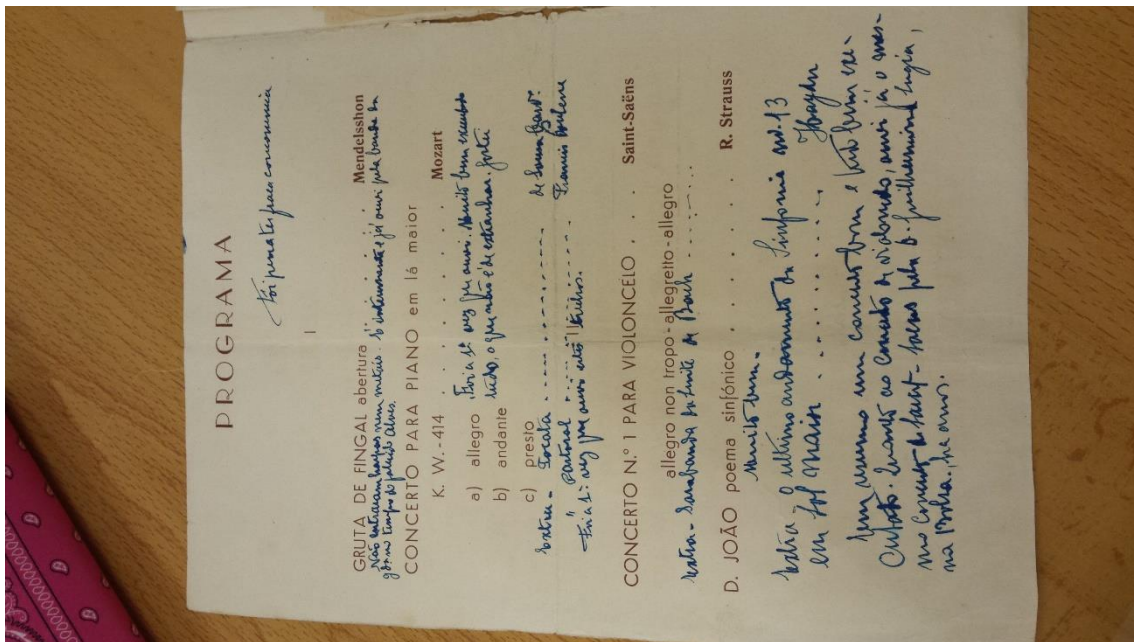 PROGRAMA
Foi pena ter pouca concorrencia
I
GRUTA DE FINGAL abertura . . . Mendelsshon
Não entraram harpas nem metais. Só interessante e já ouvi pela banda da
g. no tempo do falecido Alves.
CONCERTO PARA PIANO em lá maior
K. W. - 414 . . . . . . . . Mozart
a) allegro Foi a 1ª vez que ouvi. Muito bem executado
b) andante tudo, o que não é de estranhar.
c) presto
Extra - Tocata . . . . . . . . . . . . de
" Pastoral . . . . . . . . . . Francis Poulenc
Foi a 1ª vez que ouvi estes trechos.
II
CONCERTO N.º 1 PARA VIOLONCELO . . Saint-Saëns
allegro non tropo - allegretto - allegro
Extra - Sarabanda da Suite de Bach . . . . . . .
D. JOÃO poema sinfónico . . . . . . R. Strauss
Muito bom.
Extra - O ultimo andamento da Sinfonia nº 13
em sol maior . . . . . . . . . Haydn
mesmo um concerto bom e tudo bem exe-
cutado. Quanto ao Concerto de violoncelo, ouvi já o mes-
mo Concerto de Saint-Saens pela D. Guilhermina Suggia,
na, ha anos.